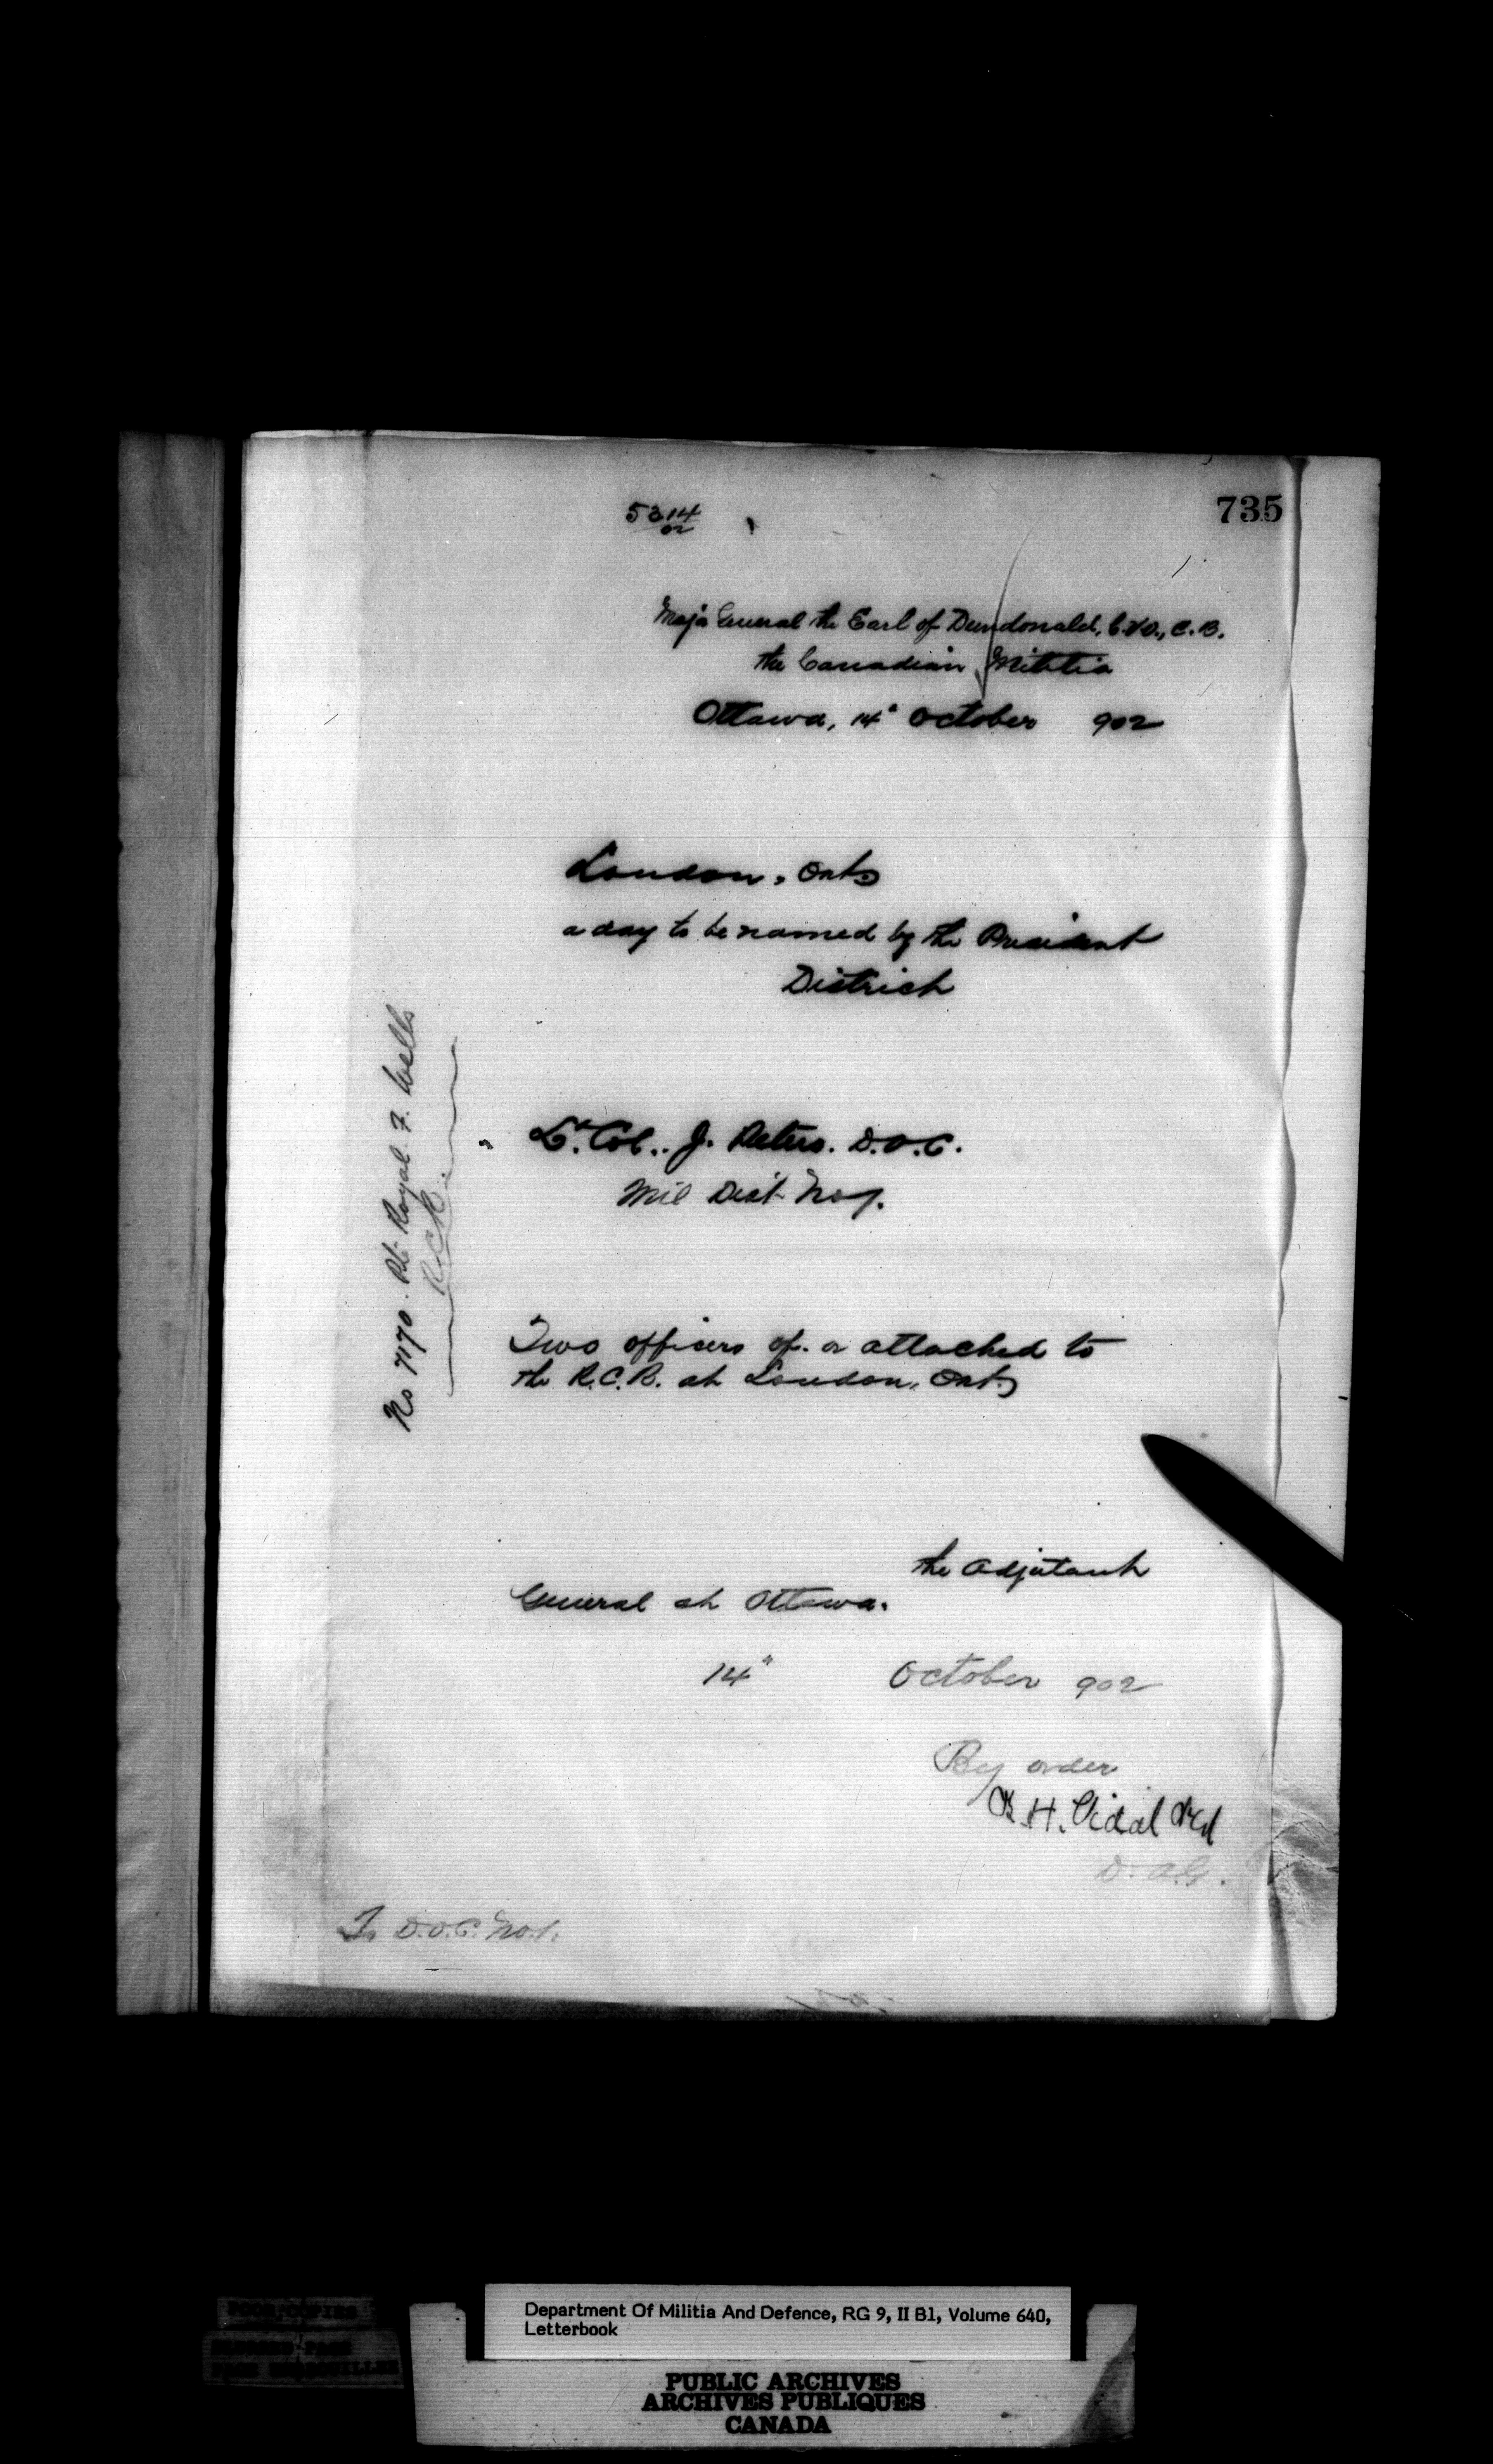 735
5314
02
Major General the Earl of Dundonald, C.V.O., C.B.
the Canadian Militia
Ottawa, 14" October 902
London, Ont
a day to be named by the President
District
Lt. Col. J. Peters. D.O.C.
Mil Dist No 1.
No 7170. Pte Royal F. Wells
R.C.R.
Two officers of or attached to
the R.C.R. at London, Ont.
the Adjutant
General at Ottawa.
14" October 902
By order
B.H. Vidal Col
D.A.G.
To D.O.C. No. 1.
Department Of Militia And Defence, RG 9, II B1, Volume 640,
Letterbook
PUBLIC ARCHIVES
ARCHIVES PUBLIQUES
CANADA